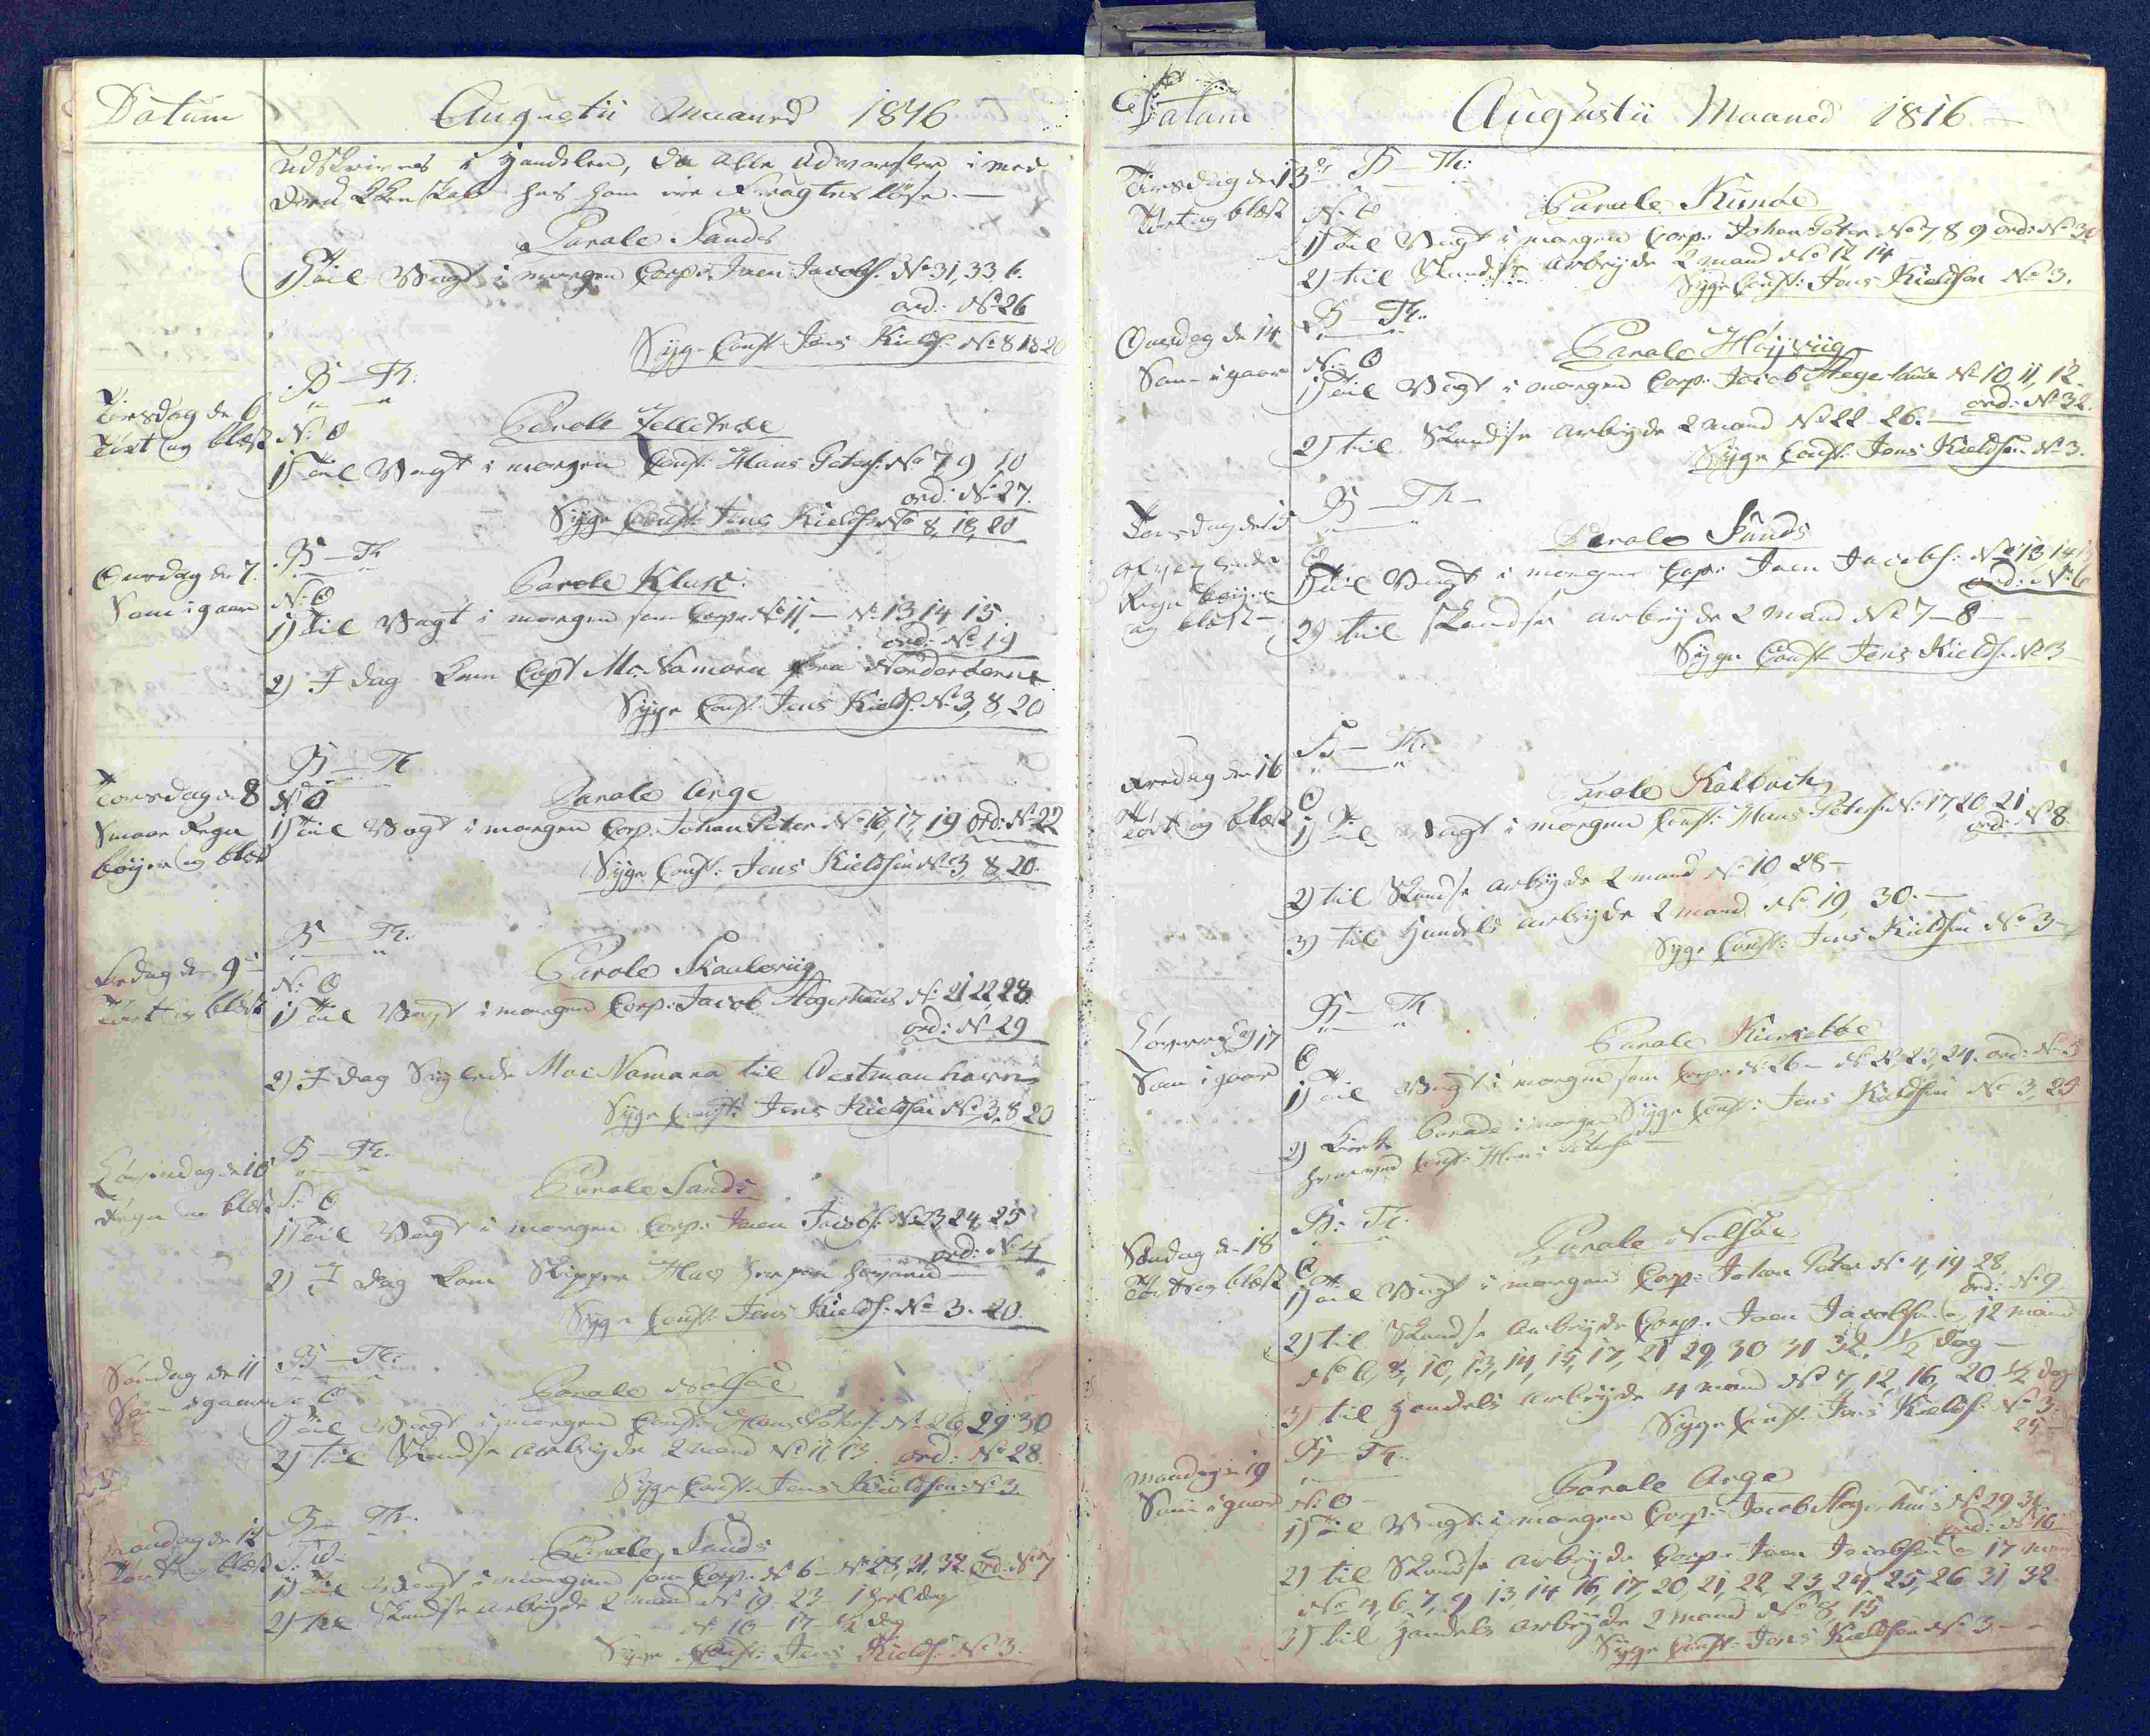 Datum
Augustii Maaned 1816
udskrives i Handelen, da alle Advarsler i med
hos ham ere frugtesløse. —
Parole Sands
1) Til Vagt i morgen Corp: Joen Jacobs: No 31, 33, 6.
ord: No 26
Syge Const: Jens Kields: No 8 18 20
B — Th:
Tirsdag de 6
Tört og blæst
N: O
Parole
1) Til Vagt i morgen Const: Hans Peters: No 7, 9 10
ord: No 27.
Syge Const: Jens Kields: No 8, 18, 20
B — Th
Onsdag de 7.
Som i gaar
N: O
Parole
1) Til Vagt i morgen som Corp: No 11 — No 13 14 15.
ord: No 19
2) I dag kom Capt Mc: Namara fra
Syge Const: Jens Kields: No 3, 8, 20
B — Th
Torsdag d 8
Smaae Regn
böyer og blæst
N: O
Parole Arge
1) Til Vagt i morgen Corp: Johan Peter No 16, 17, 19 ord: No 22
Syge Const: Jens Kieldsen No 3, 8, 20.
B — Th:
Fredag de 9
Tört og blæst
N: O
Parole Skaaleviig
1) Til Vagt i morgen Corp: Jacob Hogerhuus No 21 22 28.
ord: No 29
2) I dag Seylede Mac Namara til Vestmanhavn
Syge Const: Jens Kieldsen No 3, 8 20
B — Th:
Löverdag de 10
Regn og blæst
N: O
Parole Sands
1) Til Vagt i morgen Corp: Joen Jacobs: No 23 24, 25
ord: No 4
2) I dag kom Skipper
Syge Const: Jens Kields: No 3. 20.
B — Th:
Söndag de 11
Som i gaar
O
Parole Nolsöe
1) Til Vagt i morgen Const: Hans Peters: No 26, 29 30
2) til Skandse arbeyde 2 mand No 11 13 ord: No 28.
Syge Const: Jens Kieldsen No 3.
B — Th:
Mandag de 12
Tört og blæst
Parole Sands
1) Til Vagt i morgen som Corp: No 6 — No 28, 31, 32. ord: No 7
2) til Skandse arbeyde 2 mand No 19 - 23 - 1 heel dag
No 10 - 17 - ½ dag
Syge Const: Jens Kields: No 3.
Datum
Augustii Maaned 1816
Tirsdag de 13de
Tört og blæst
B — Th:
N: O
Parole Kunöe
1) Til Vagt i morgen Corp: Johan Peter No 7, 8 9 ord: No 30
2) til Skandse arbeyde 2 mand No 12 14
Syge Const: Jens Kieldsen No 3.
B — Th:
Onsdag de 14
Som i gaar
N: O
Parole Höyviig
1) Til Vagt i morgen Corp: Jacob Hogerhuus No 10, 11, 12.
ord: No 32.
2) til Skandse arbeyde 2 mand No 22 - 26. —
Syge Const: Jens Kieldsen No 3.
B — Th —
Torsdag de 15
Regn böyer
og blæst —
O
Parole Sands
1) Til Vagt i morgen Corp: Joen Jacobs: No 13 14 15
ord: No 6
2) til Skandse arbeyde 2 mand No 7 - 8 —
Syge Const: Jens Kields: No 3
B — Th:
Fredag de 16
Tört og blæst
O
Parole Kalbach
1) Til Vagt i morgen Const: Hans Peters: No 17, 20 21
ord: No 8.
2) til Skandse arbeyde 2 mand No 10, 28 —
3) til Handels arbeyde 2 mand No 19, 30. —
Syge Const: Jens Kieldsen No 3 —
B — Th
Löverdag 17
Som i gaar
O
Parole Kirkeböe
1) Til Vagt i morgen som Corp: No 26 — No 22, 23, 24. ord: No 5
Syge Const: Jens Kieldsen No 3, 25
2) Kirke Parade i morgen
Const: Hans Peters:
B: Th:
Söndag de 18
Tört og blæst
O
Parole Nolsöe
1) Til Vagt i morgen Corp: Johan Peter No 4, 19 28,
ord: No 9,
2) til Skandse arbeyde Corp: Joen Jacobsen og 12 mand
No 6, 8, 10, 13, 14, 15, 17, 21 29, 30 31 32. ½ dag —
3) til Handels arbeyde 4 mand No 7, 12, 16, 20 ½ dag
Syge Const: Jens Kields: No 3.
25
B — Th:
Mandag de 19
Som i gaar
N: O —
Parole Arge
1) Til Vagt i morgen Corp: Jacob Hogerhuus No 29 30
ord: No 10
2) til Skandse arbeyde Corp: Joen Jacobsen og 17 mand
No 4, 6 7, 9 13, 14 16, 17, 20, 21, 22 23, 24, 25, 26 31, 32.
3) til Handels arbeyde 2 mand No 8, 15
Syge Const: Jens Kieldsen No 3 —